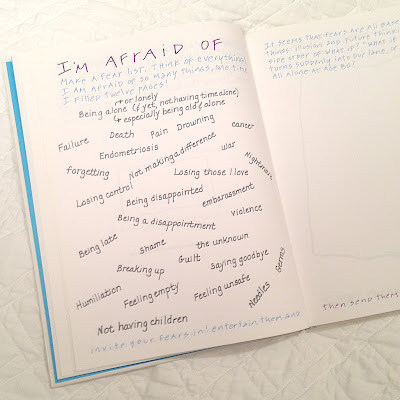 I'M AFRAID OF
MAKE A FEAR LIST. THINK OF EVERYTHING
I AM AFRAID OF SO MANY THINGS, ONE TIME
I FILLED TWELVE PAGES!
or lonely
Being alone (& yet, not having time alone)
especially being old & alone
Failure Death Pain Drowning cancer
Endometriosis
forgetting Not making a difference war Nightmares
Losing control Losing those I love
Being disappointed embarassment
Being a disappointment violence
Being late shame the unknown
Breaking up Guilt saying goodbye Germs
Humiliation Feeling empty Feeling unsafe Needles
Not having children
INVITE YOUR FEARS IN! ENTERTAIN THEM AND
IT SEEMS THAT FEARS ARE ALL
THINGS, ILLUSION AND FUTURE
OF WHAT IF? "WHAT IF
TURNS SUDDENLY INTO OUR LANE, OR
ALL ALONE AT AGE 80?
THEN SEND THEM